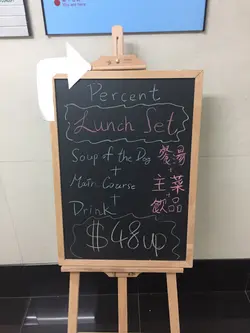 Percent
Lunch Set
Soup of the Dog 餐湯
+
Main Coarse 主菜
+
Drink 飲品
$48up